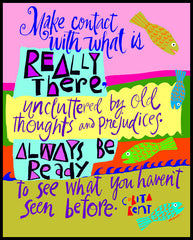 Make contact
with what is
REALLY
there.
uncluttered by old
thoughts and prejudices.
ALWAYS BE
ReADy
to see what you haven't
seen before.
CORITA
Kent